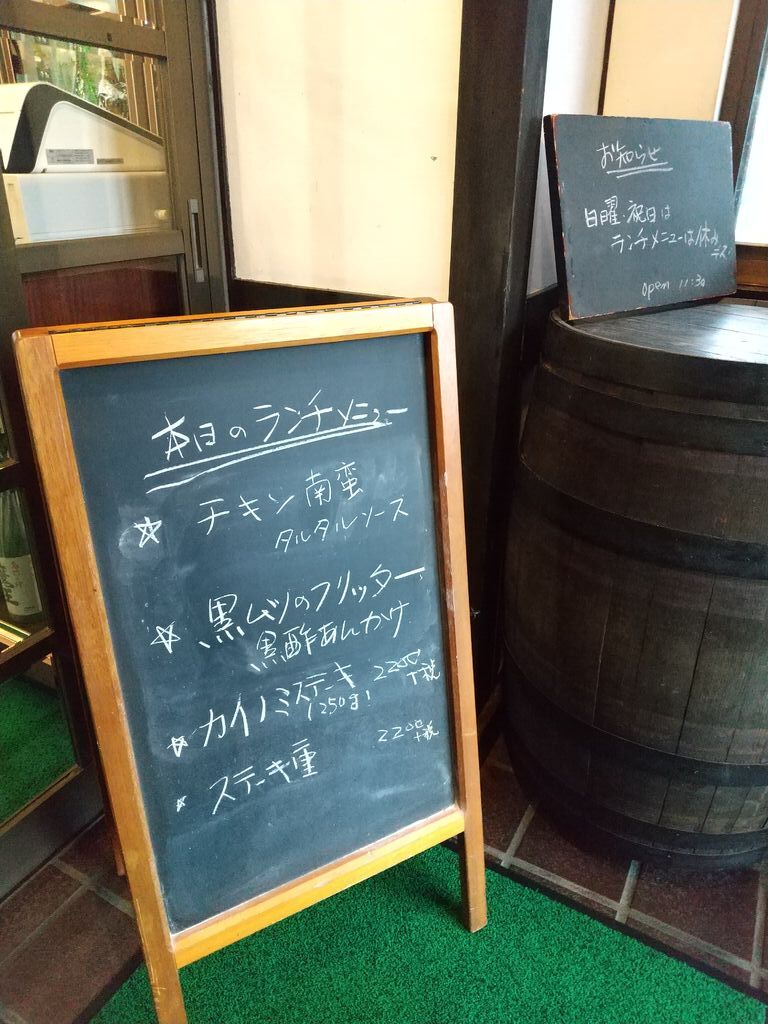 本日のランチメニュー
☆ チキン南蛮
タルタルソース
☆ 黒ムツのフリッター
黒酢あんかけ
☆ カイノミステーキ 2200+税
250g!
☆ ステーキ重 2200+税
お知らせ
日曜・祝日は
ランチメニューは休み
デス
open 11:30